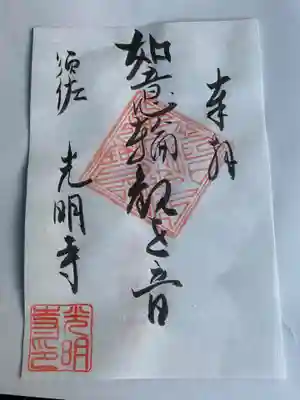 奉拝
如意輪観世音
須佐
光明寺
光明
寺印